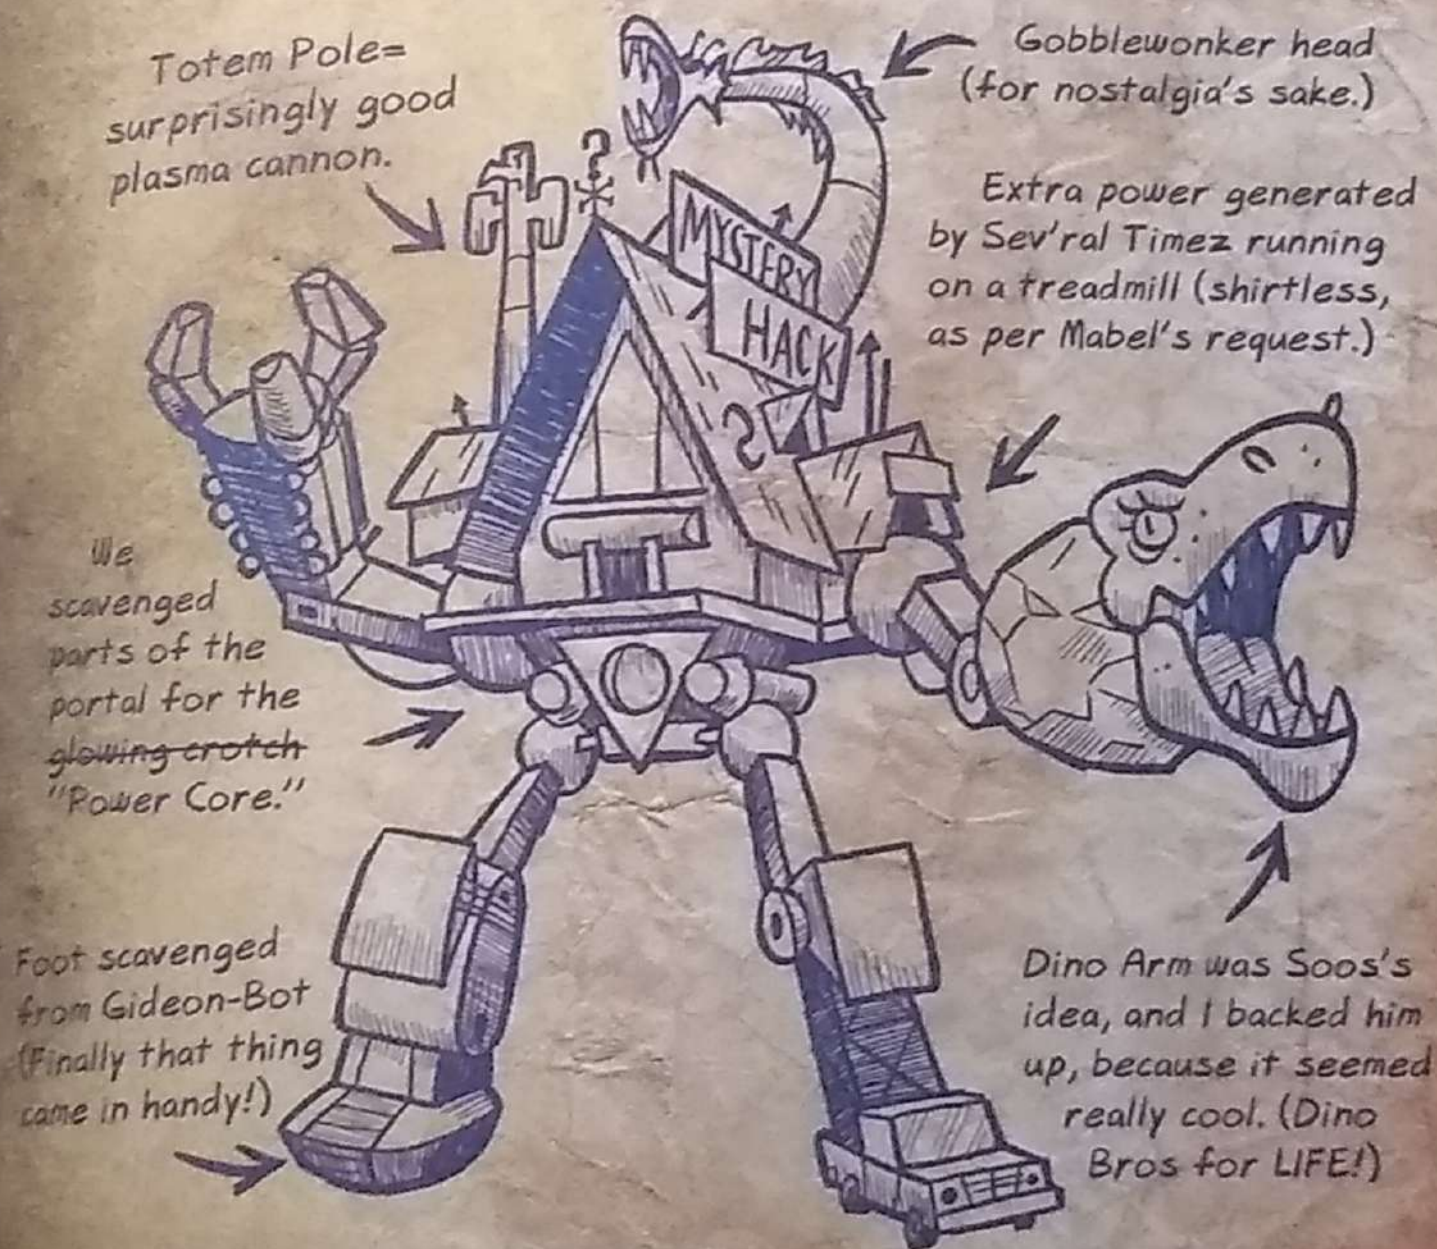 Totem Pole=
surprisingly good
plasma cannon.
Gobblewonker head
(for nostalgia's sake.)
Extra power generated
by Sev'ral Timez running
on a treadmill (shirtless,
as per Mabel's request.)
?
MYSTERY
HACK
S
?
We
scavenged
parts of the
portal for the
glowing crotch
"Power Core."
Foot scavenged
from Gideon-Bot
(Finally that thing
came in handy!)
Dino Arm was Soos's
idea, and I backed him
up, because it seemed
really cool. (Dino
Bros for LIFE!)